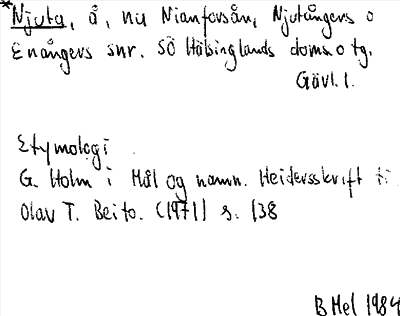 *Njuta, å, nu Nianforsån, Njutångers o
Enångers snr. SÖ Hälsinglands doms.o tg.
Gävl.l.
Etymologi
G. Holm i Mål og namn. Heidersskrift ti
Olav T. Beito. (1971) s. 138
B Mel 1984